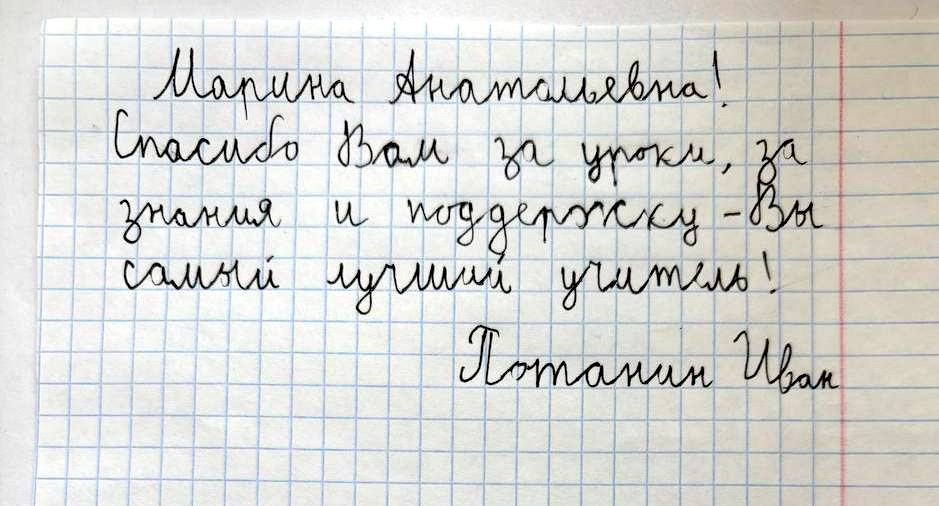 Марина Анатольевна!
Спасибо Вам за уроки, за
знания и поддержку - Вы
самый лучший учитель!
Потанин Иван